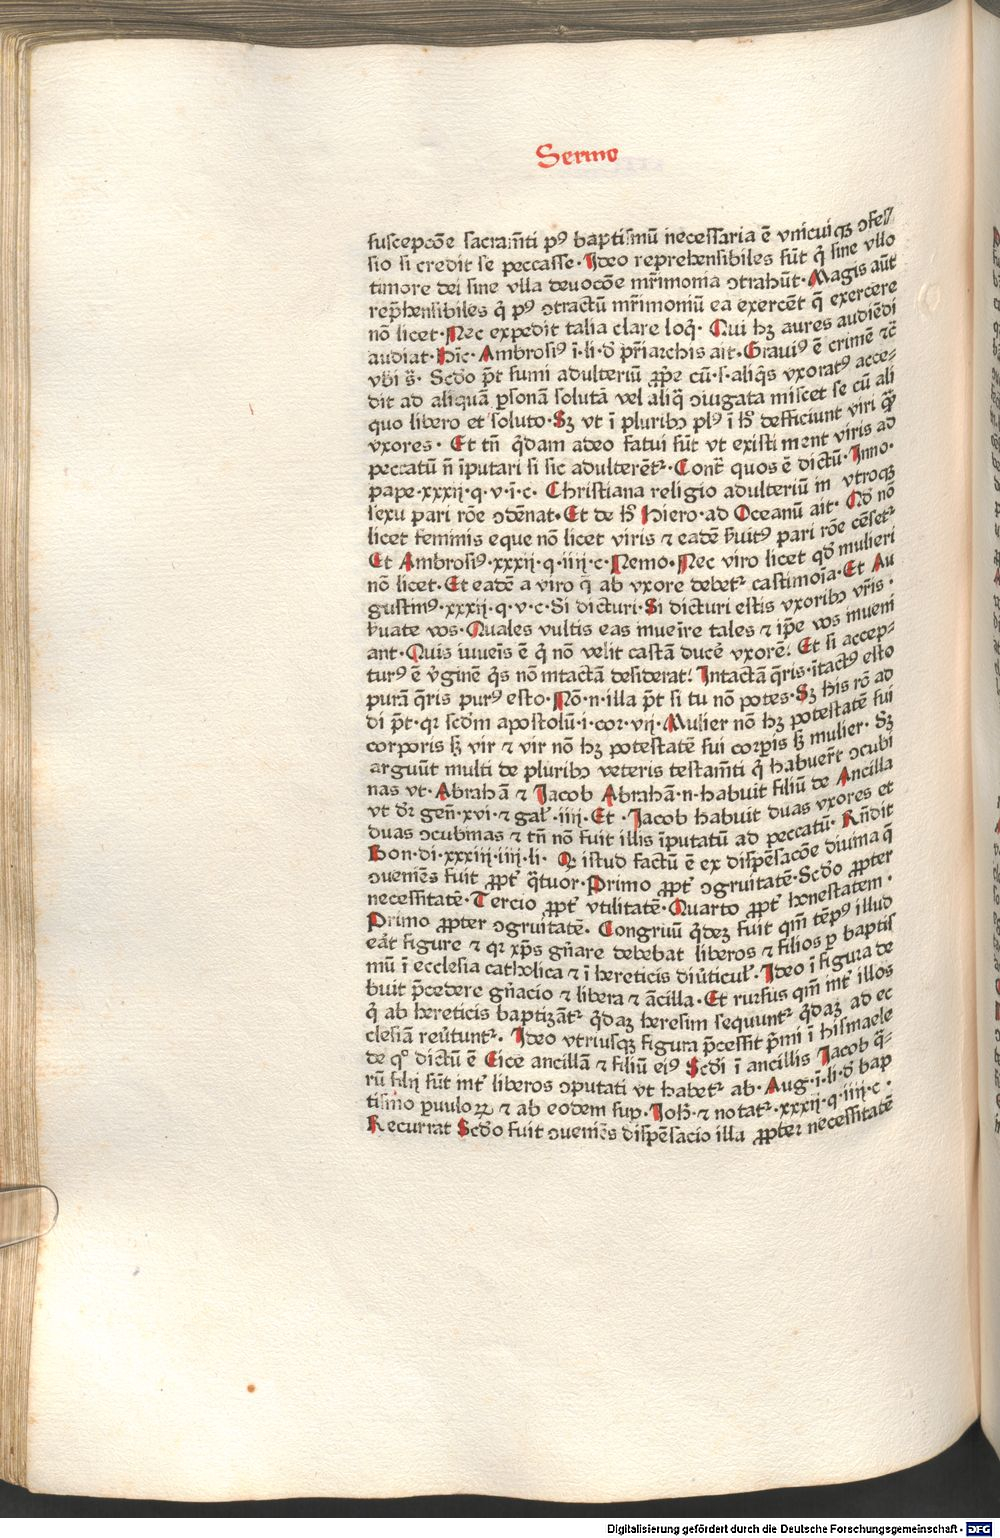 Sermo
suscepcōe sacram̄ti pꝰ baptismū necessaria ē vnicuiqꝫ ↄfes⸗
sio si credit se peccasse·Ideo reprehensibiles sūt q̇ sine vllo
timore dei sine vlla deuocōe mr̄imonia ↄtrahūt·Magis aūt
repr̄hensibiles q̇ pꝰ ↄtractū mr̄imoniū ea exercēt q̄ exercere
nō licet·Nec expedit talia clare loq̇· Qui hꝫ aures audiēdi
audiat·Hīc·Ambrosiꝰ ī·li·d̄ pr̄iarchis ait·Grauiꝰ ē crimē ⁊c̄
vbi s̄· Scd̄o p̄t sumi adulteriū ꝓpͤ cū·s·aliq̇s vxoratꝰ acce⸗
dit ad aliquā ꝑsonā solutā vel aliq̄ ↄiugata miscet se cū ali
quo libero et soluto·Sꝫ vt ī pluribꝰ plꝰ ī h̄ defficiunt viri q̄ꝫ
vxores· Et tn̄ q̇dam adeo fatui sūt vt existiment viris ad
peccatū n̄ īputari si sic adulterēt᷑·Cont̄ quos ē dictū·Inno·
pape·xxxij·q·v·ī·c· Christiana religio adulteriū in vtroqꝫ
sexu pari rōe ↄdēnat·Et de h̄ Hiero·ad Oceanū ait· Qd̄ nō
licet feminis eque nō licet viris ⁊ eadē s̄uitꝰ pari rōe cēset᷑
Et Ambrosiꝰ·xxxij·q·iiij·c·Nemo·Nec viro licet qd̄ mulieri
nō licet·Et eadē a viro q̄ ab vxore debet᷑ castimōia·Et Au
gustinꝰ·xxxij·q·v·c·Si dicturi·Si dicturi estis vxoribꝰ vr̄is·
s̄uate vos·Quales vultis eas inuenire tales ⁊ ip̄e vos inueni
ant·Quis iuuenis ē q̇ nō velit castā ducē vxorē! Et si accep⸗
turꝰ ē v̇ginē q̇s nō intactā desiderat! Intactā q̄ris·ītactꝰ esto
purā q̄ris purꝰ esto·Nō·n·illa p̄t si tu nō potes·Sꝫ his rō ad
di p̄t·qr scd̄m apostolū·i·cor·vij·Mulier nō hꝫ potestatē sui
corporis sꝫ vir ⁊ vir nō hꝫ potestatē sui corꝑis sꝫ mulier· Sꝫ
arguūt multi de pluribꝰ veteris testam̄ti q̇ habuer̄t ↄcubi
nas vt·Abrahā ⁊ Jacob Abrahā·n·habuit filiū de Ancilla
vt dr̄ gen̄·xvi·⁊ gal̄·iiij·Et·Jacob habuit duas vxores et
duas ↄcubinas ⁊ tn̄ nō fuit illis īputatū ad peccatū· Rn̄dit
Bon·di·xxxiij·iiij·li· Qꝫ istud factū ē ex dispēsacōe diuina q̄
ↄueniēs fuit ꝓpt̄ q̄tuor·Primo ꝓpt̄ ↄgruitatē·Scd̄o ꝓpter
necessitatē·Tercio ꝓpt̄ vtilitatē·Quarto ꝓpt̄ honestatem·
Primo ꝓpter ↄgruitatē· Congruū q̇deꝫ fuit qm̄ tēpꝰ illud
eāt figure ⁊ qr xp̄s gn̄are debebat liberos ⁊ filios ꝑ baptis
mū ī ecclesia catholica ⁊ ī hereticis diūticul̄·Ideo ī figura de
buit p̄cedere gn̄acio ⁊ libera ⁊ ācilla·Et rursus qm̄ int̄ illos
q̇ ab hereticis baptizāt᷑ q̇daꝫ heresim sequunt᷑ q̇daꝫ ad ec
clesiam reūtunt᷑· Ideo vtriusqꝫ figura p̄cessit p̄mi ī hismaele
de qͦ dictū ē Eice ancillā ⁊ filiū eiꝰ Scd̄i ī ancillis Jacob q̄⸗
rū filij sūt int̄ liberos ↄputati vt habet᷑ ab·Aug·ī·li·d̄ bap
tismo ꝑuuloꝝ ⁊ ab eodem sup·Joh̄·⁊ notat᷑·xxxij·q·iiij·c·
Recurrat Scd̄o fuit ↄueniēs dispēsacio illa ꝓpter necessitatē
Digitalisierung gefördert durch die Deutsche Forschungsgemeinschaft - DFG